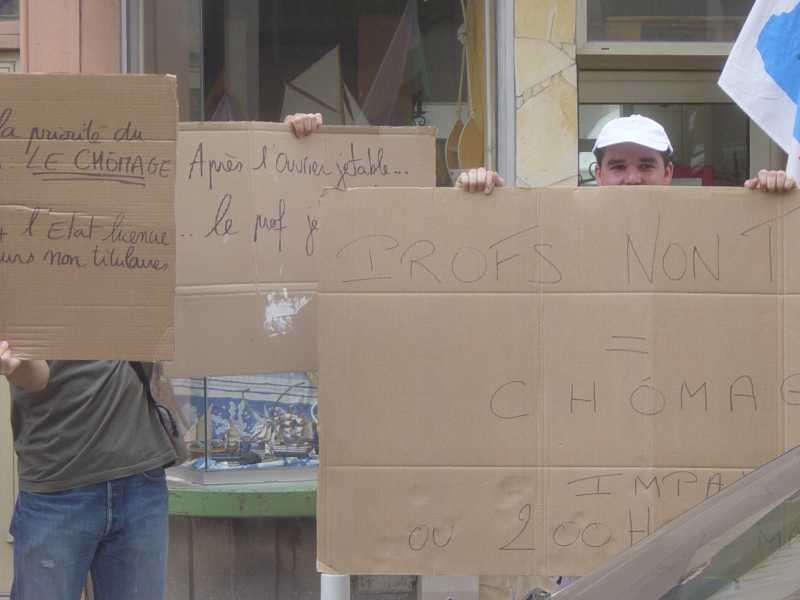 la priorité du
LE CHÔMAGE
l'Etat licencie
non titulaires
Après l'ouvrier jetable...
... le prof
PROFS NON T
=
CHÔMAG
IMPA
OU 200H